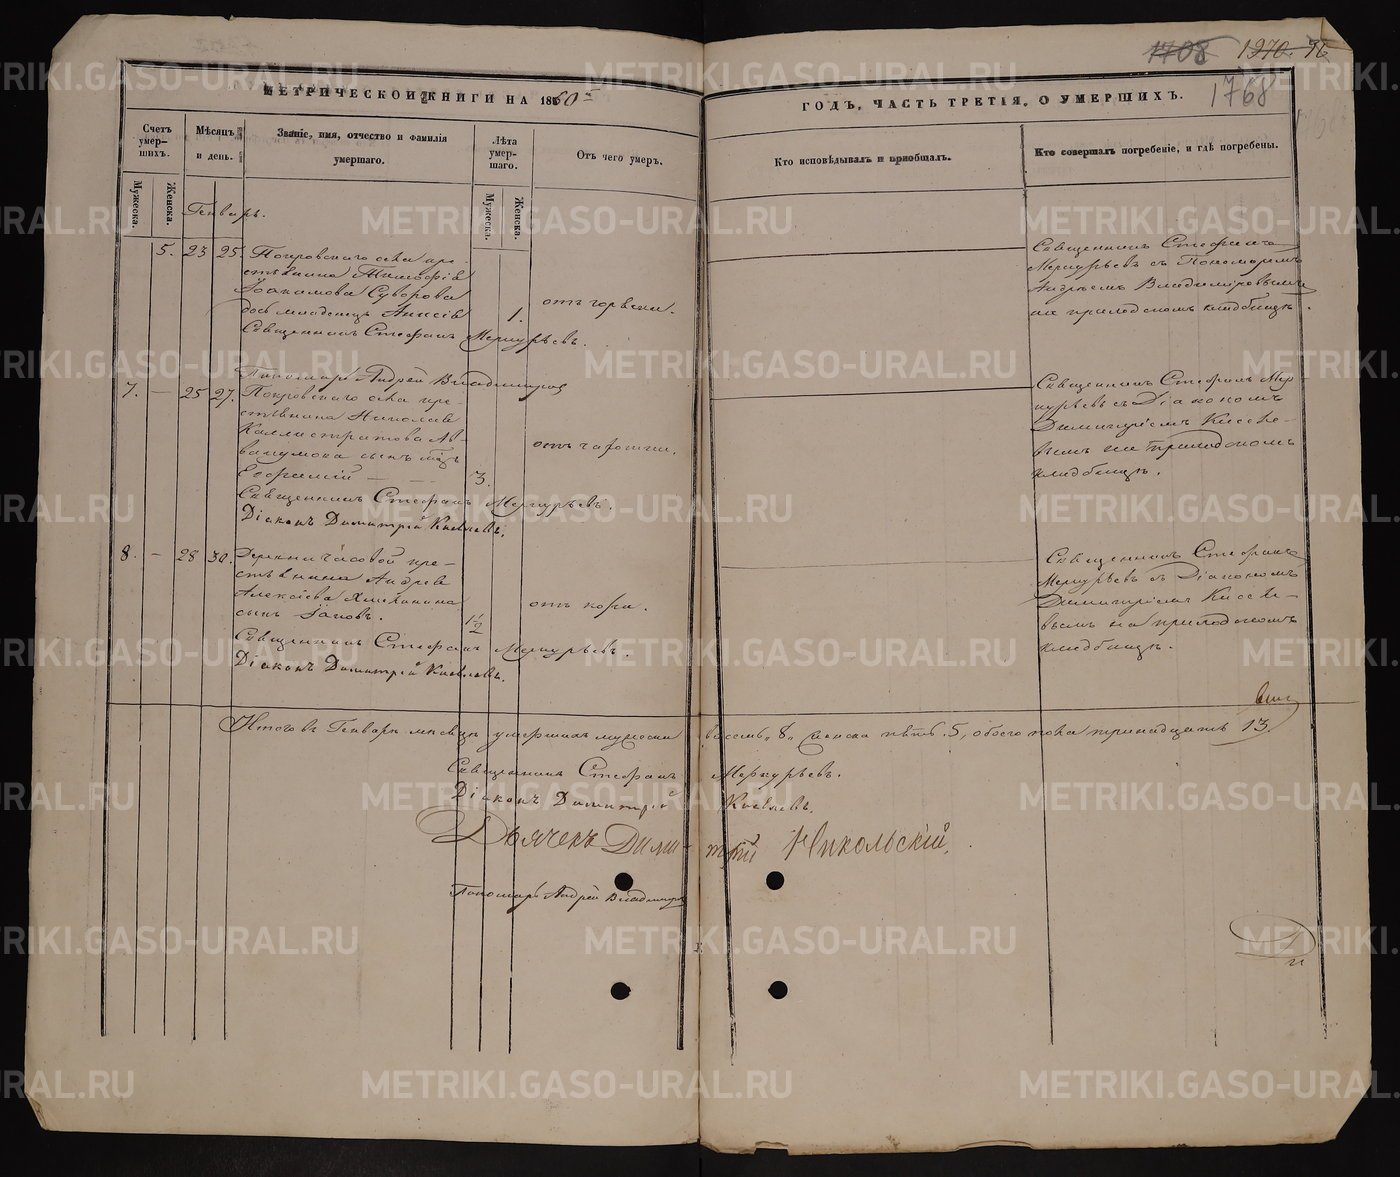 1708 1970. 76
1768
МЕТРИЧЕСКОЙ КНИГИ НА 1860 ГОДЪ, ЧАСТЬ ТРЕТІЯ, О УМЕРШИХЪ.
Счетъ умер-
шихъ.
Мужеска.
Женска.
Мѣсяцъ
и день.
Званіе, имя, отчество и фамилія
умершаго.
Лѣта
умер-
шаго.
Мужеска.
Женска.
Отъ чего умеръ.
Кто исповѣдывалъ и пріобщалъ.
Кто совершалъ погребеніе, и гдѣ погребены.
Генварь.
5. 23 25. Покровскаго села кре-
стьянина Тимофія
Іоакимова Суворова
дочь младенецъ Анисія 1.
Священникъ Стефанъ Меркурьевъ.
Пономарь Андрей Владимировъ
Священникъ Стефанъ
Меркурьевъ съ Пономаремъ
Андреемъ Владиміровымъ
на приходскомъ кладбищѣ.
7. — 25 27. Покровскаго села кре-
стьянина Николая
Каллистратова Ав-
вакумова сынъ
3.
Священникъ Стефанъ Меркурьевъ.
Діаконъ Димитрій
Священникъ Стефанъ Мер-
курьевъ съ Діакономъ
Димитріемъ
на приходскомъ
кладбищѣ.
8. — 28 30. Деревни Часовой кре-
стьянина Андрея
Алексіева
сынъ Іаковъ. 1 1/2
отъ кори.
Священникъ Стефанъ Меркурьевъ.
Діаконъ Димитрій
Священникъ Стефанъ
Меркурьевъ съ Діакономъ
Димитріемъ
на приходскомъ
кладбищѣ.
Итого въ Генварѣ мѣсяцѣ умершихъ мужеска восемь „8„ женска пять 5, обоего пола тринадцать 13.
Священникъ Стефанъ Меркурьевъ.
Діаконъ Димитрій
Дьячекъ Димитрій Никольскій.
Пономарь Андрей Владимировъ
METRIKI.GASO-URAL.RU